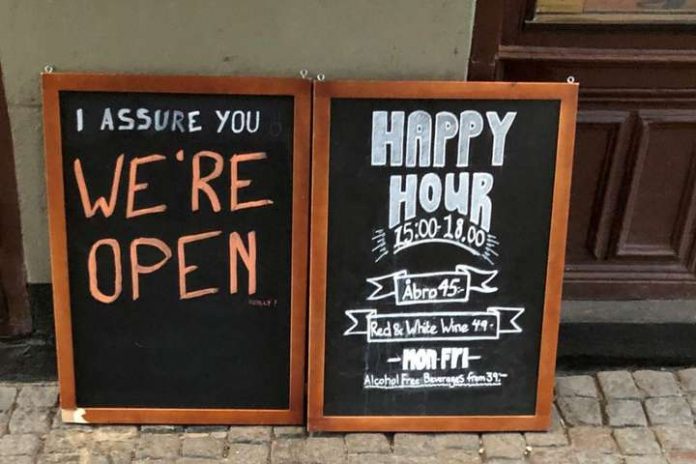 I ASSURE YOU
WE'RE
OPEN
REALLY!
HAPPY
HOUR
15:00-18.00
Åbro 45:-
Red & White Wine 49:-
-MON-FRI-
Alcohol Free Beverages from 39:-